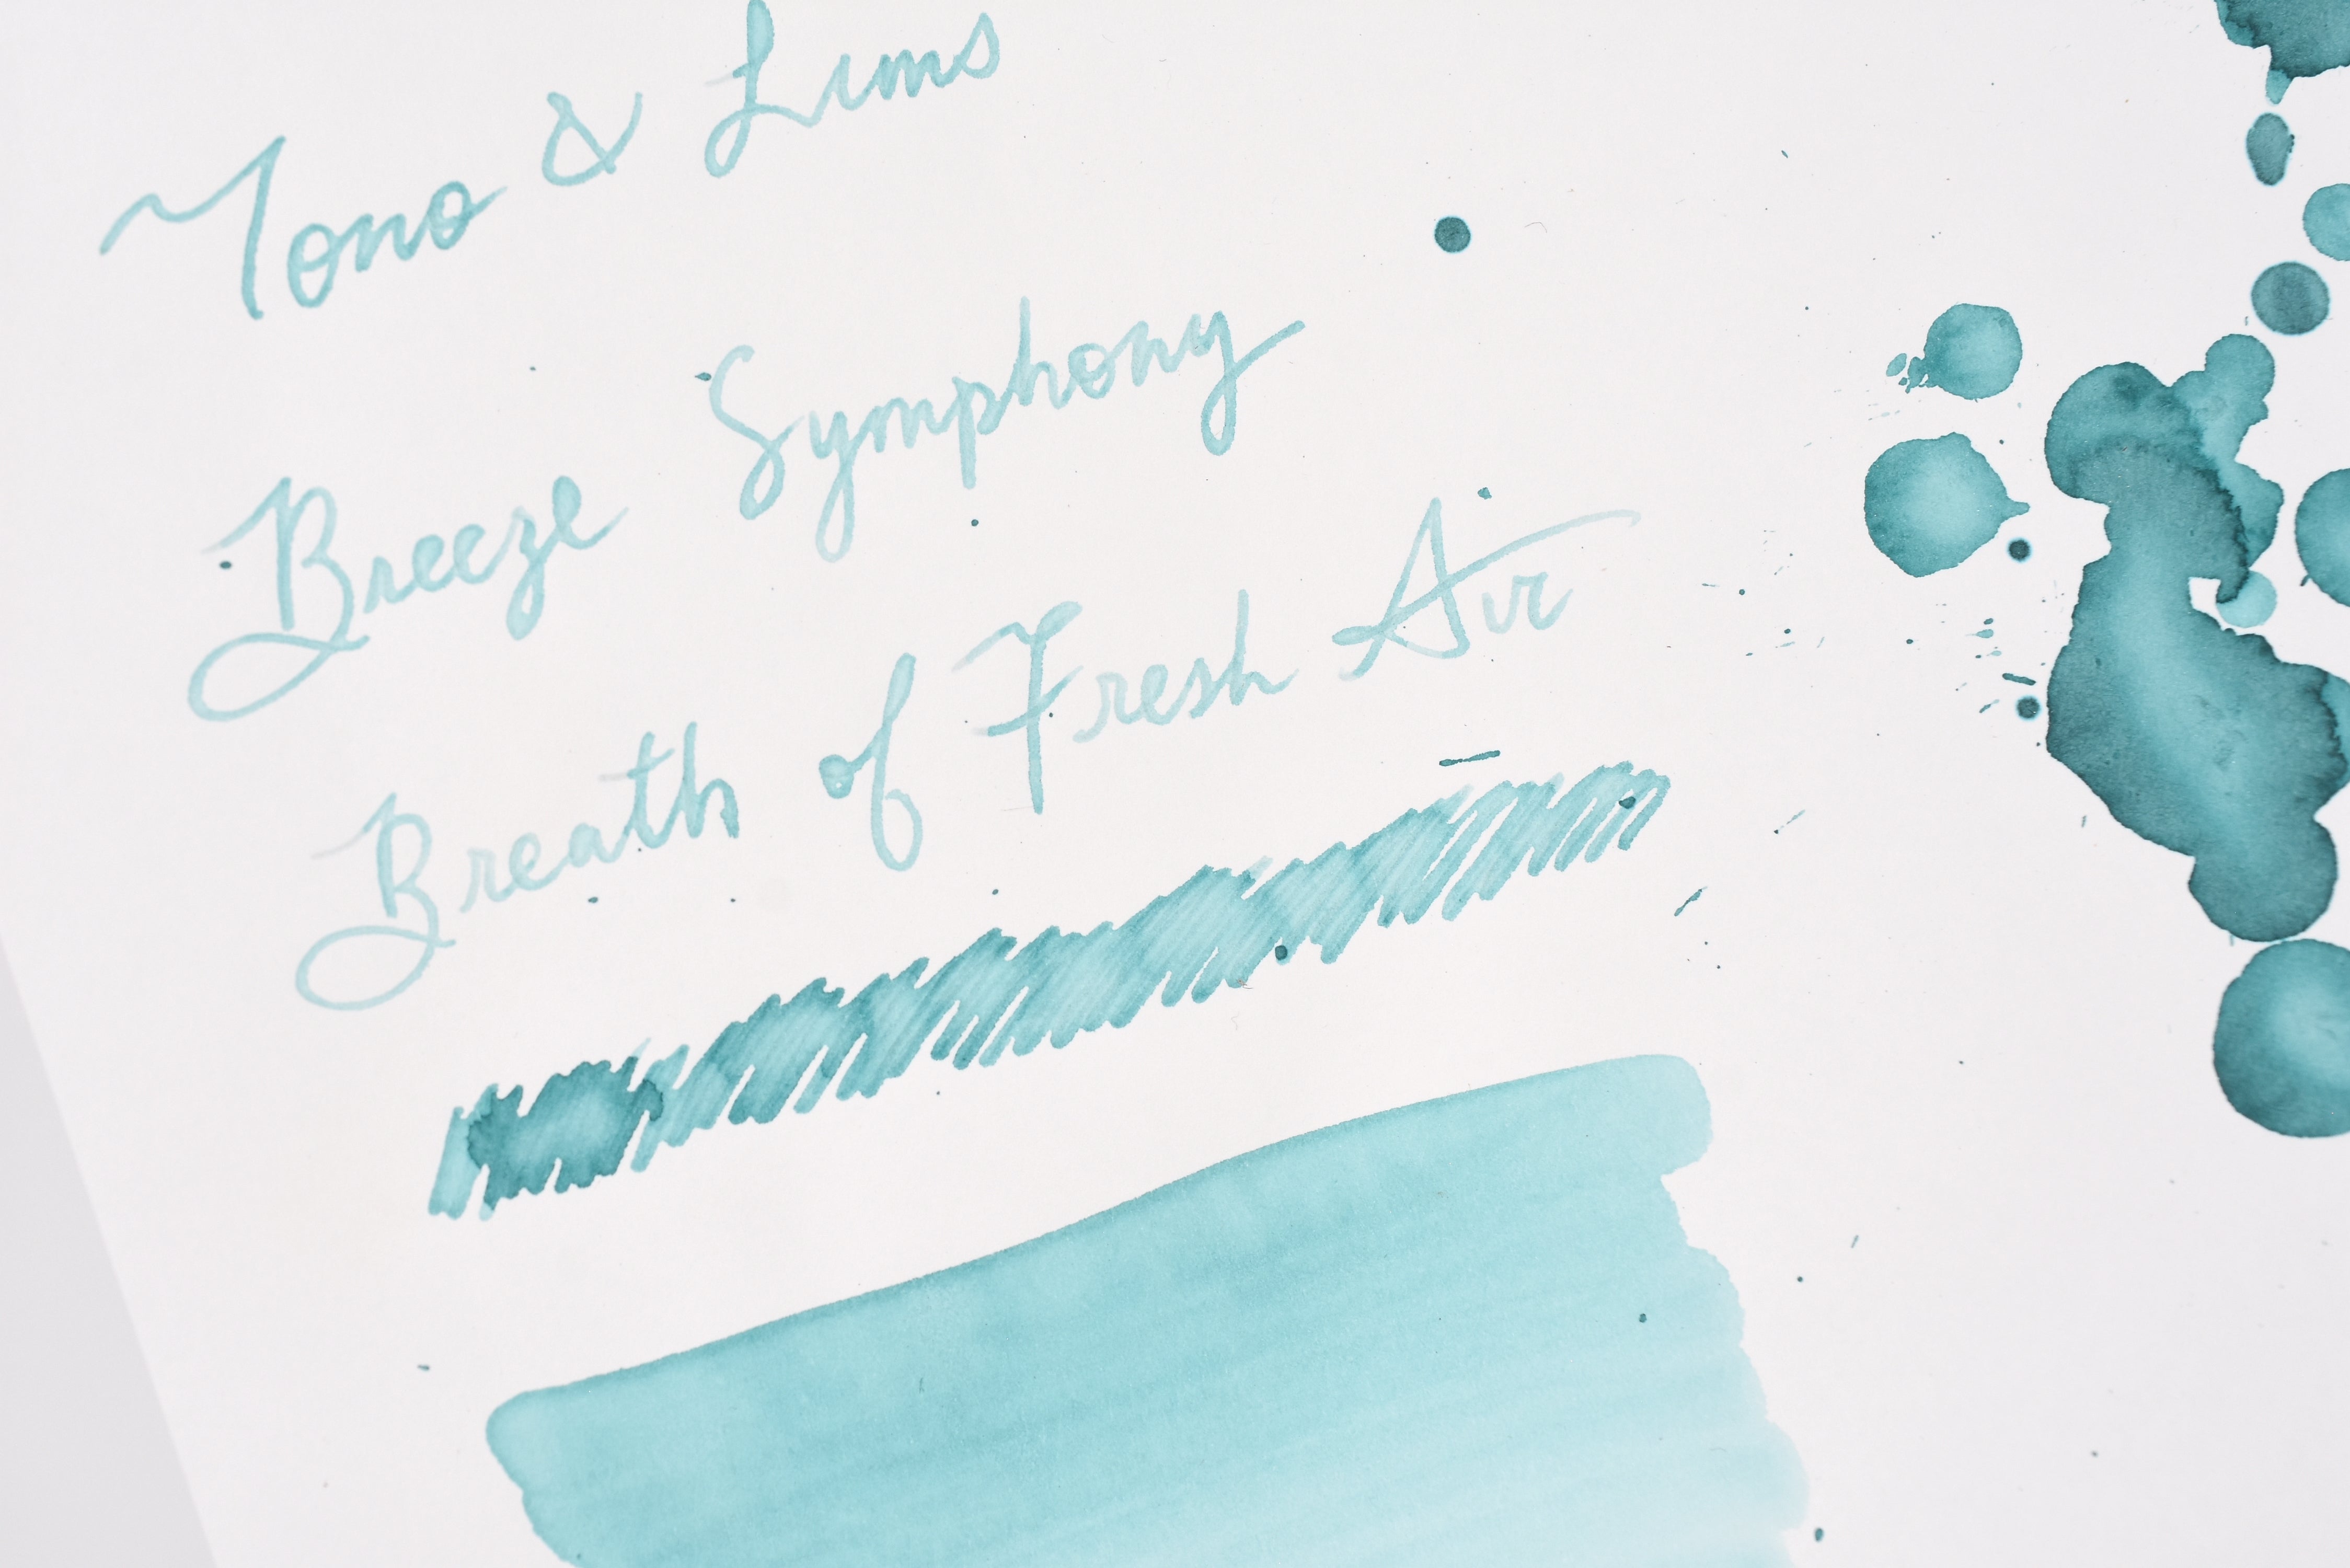 Tono & Lims
Breeze Symphony
Breath of Fresh Air